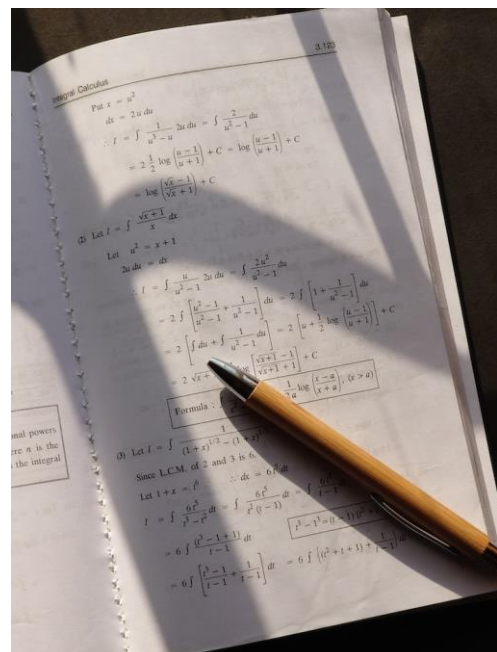 Integral Calculus 3.123
Put x = u²
dx = 2u du
∴ I = ∫ 1/(u³ − u) 2u du = ∫ 2/(u² − 1) du
= 2 1/2 log ((u − 1)/(u + 1)) + C = log ((u − 1)/(u + 1)) + C
= log ((√x − 1)/(√x + 1)) + C
(2) Let I = ∫ √(x + 1)/x dx
Let u² = x + 1
2u du = dx
∴ I = ∫ u/(u² − 1) 2u du = ∫ 2u²/(u² − 1) du
= 2 ∫ [(u² − 1)/(u² − 1) + 1/(u² − 1)] du = 2 ∫ [1 + 1/(u² − 1)] du
= 2 [∫ du + ∫ 1/(u² − 1) du] = 2 [u + 1/2 log ((u − 1)/(u + 1))] + C
= 2 √x + log [(√(x + 1) − 1)/(√(x + 1) + 1)] + C
Formula : 1/2a log ((x − a)/(x + a)) ; (x > a)
(3) Let I = ∫ 1/((1 + x)^1/2 − (1 + x)
Since L.C.M. of 2 and 3 is 6.
Let 1 + x = t⁶ ∴ dx = 6t⁵ dt
I = ∫ 6t⁵/(t³ − t²) dt = ∫ 6t⁵/(t²(t − 1)) dt = ∫ t − 1
t³ − 1³ = (t − 1) (t² +
= 6 ∫ (t³ − 1 + 1)/(t − 1) dt
= 6 ∫ [(t³ − 1)/(t − 1) + 1/(t − 1)] dt = 6 ∫ {(t² + t + 1) + 1/(t − 1)}
nal powers
ere n is the
the integral